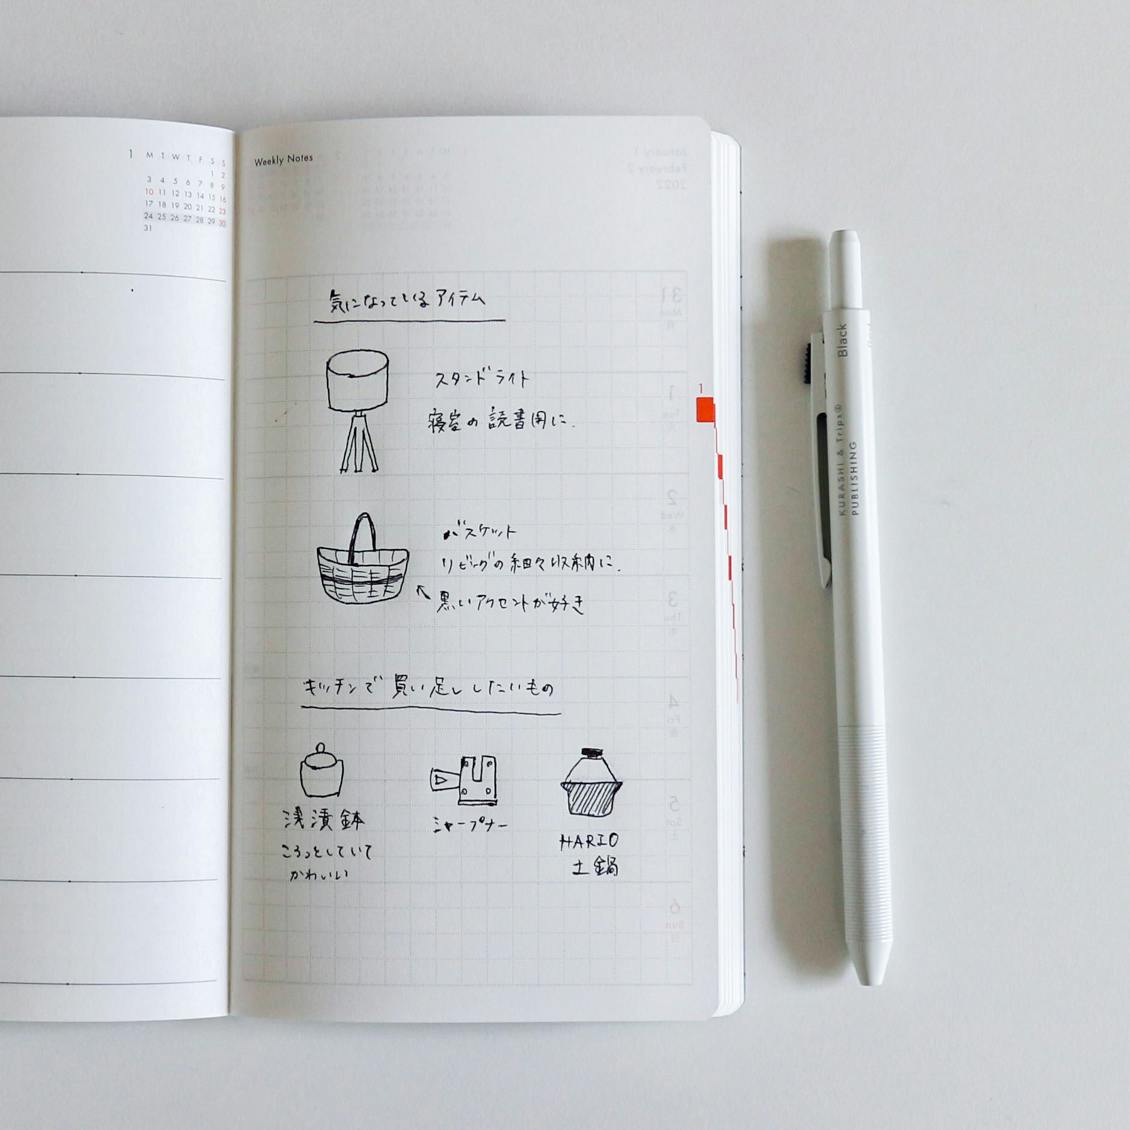 1 M T W T F S S
1 2
3 4 5 6 7 8 9
10 11 12 13 14 15 16
17 18 19 20 21 22 23
24 25 26 27 28 29 30
31
Weekly Notes
January 1
February 2
2022
気になっているアイテム
スタンドライト
寝室の読書用に.
バスケット
リビングの細々収納に.
黒いアクセントが好き
キッチンで買い足ししたいもの
浅漬鉢
ころっとしていて
かわいい
シャープナー
HARIO
土鍋
31
Mon
月
1
2
Wed
水
3
Thu
木
4
Fri
金
5
Sat
土
6
Sun
日
1
Black
KURASHI & Trips®
PUBLISHING